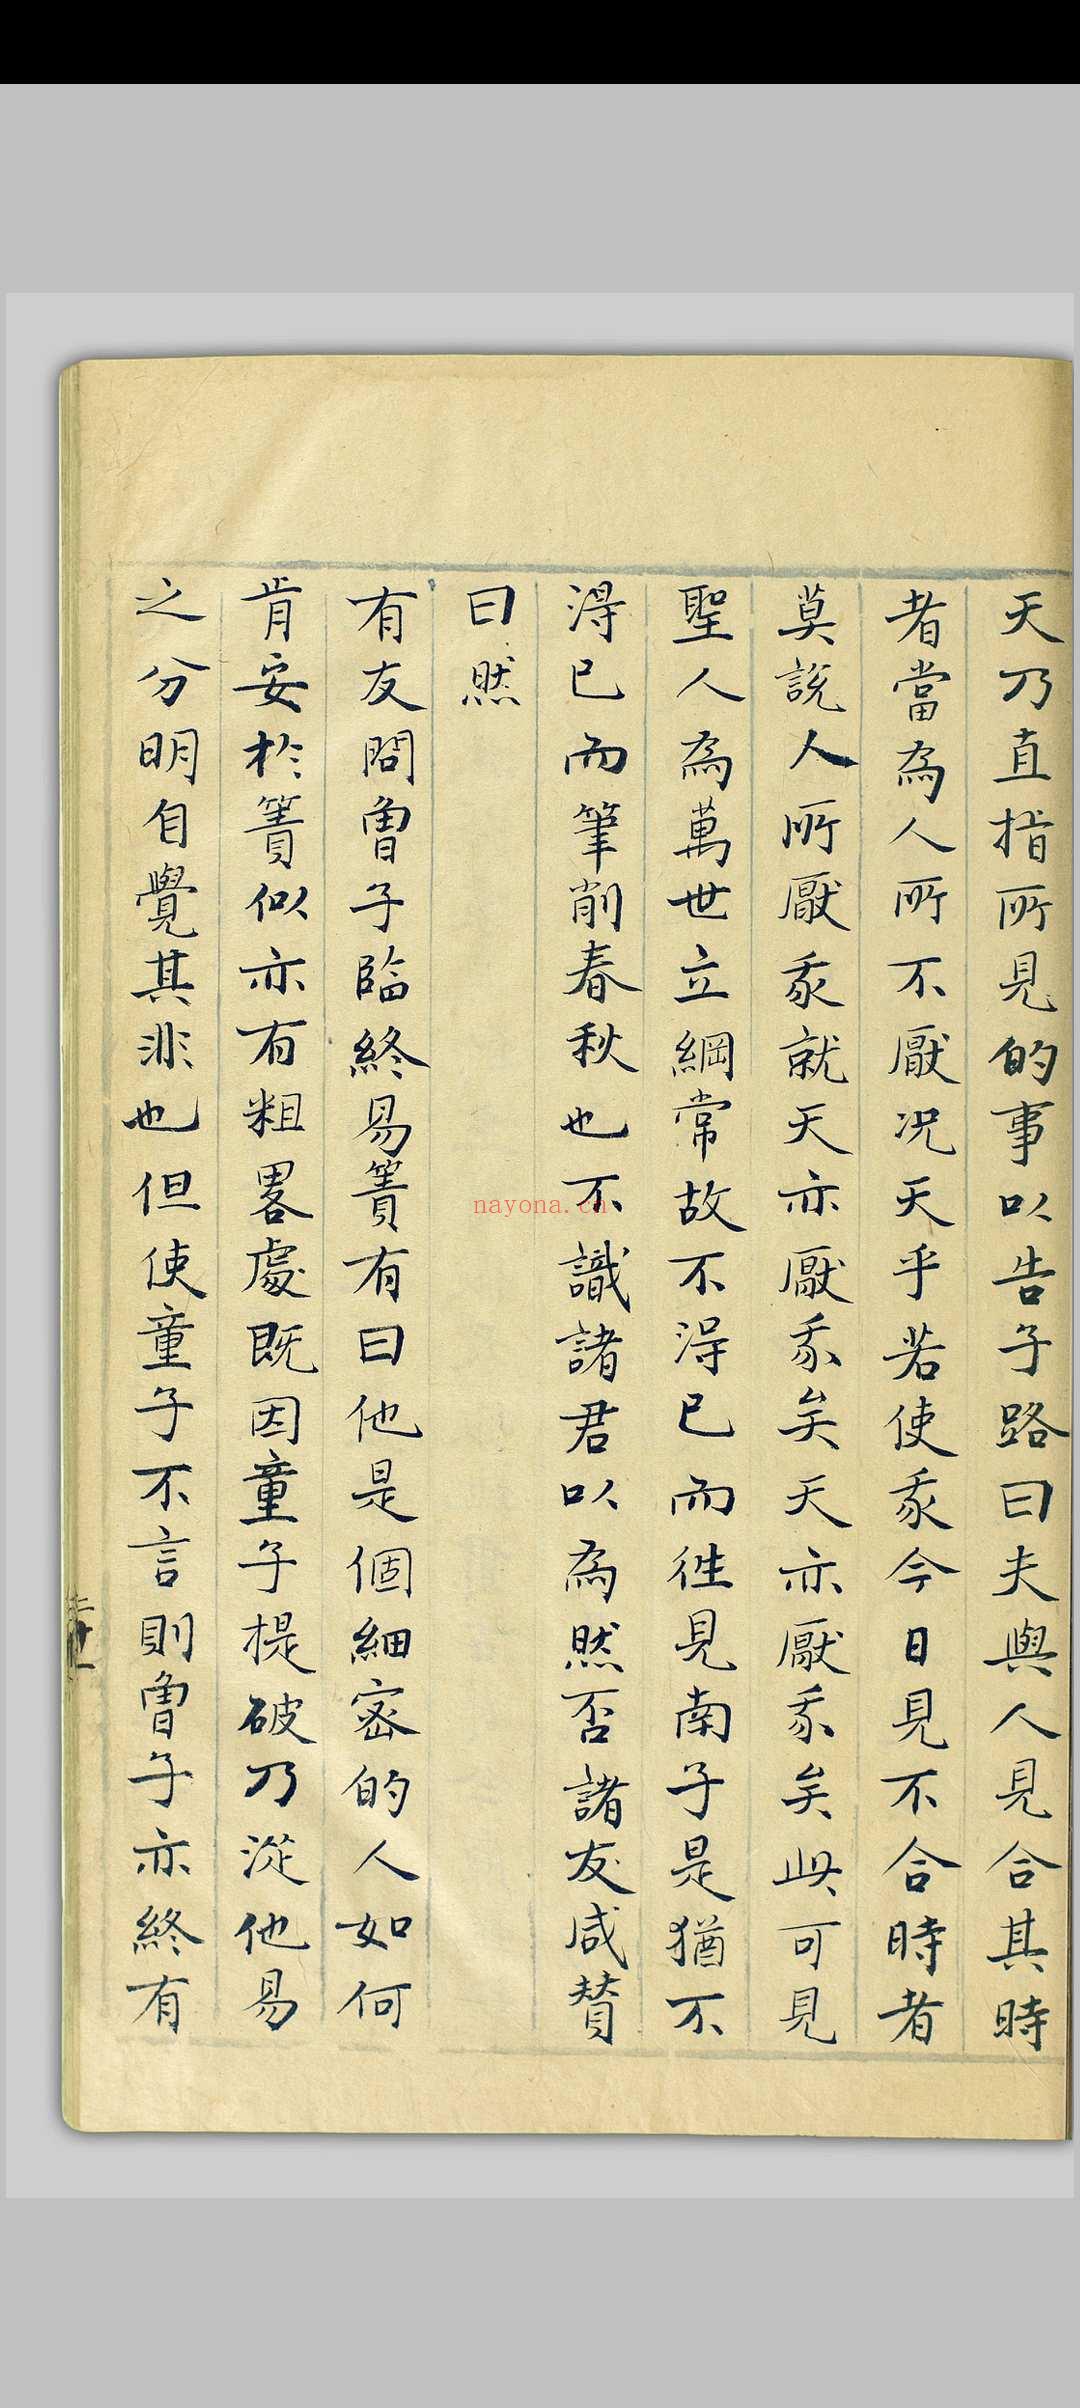 天乃直指所見的事以告子路曰夫與人見合其時
者當為人所不厭况天乎若使我今日見不合時者
莫說人所厭我就天亦厭我矣天亦厭我矣此可見
聖人為萬世立綱常故不得已而徃見南子是猶不
得已而筆削春秋也不識諸君以為然否諸友咸贊
曰然
有友問曾子臨終易簀有曰他是個細密的人如何
肯安於簀似亦有粗畧處既因童子提破乃從他易
之分明自覺其非也但使童子不言則曾子亦終有
nayona.cn